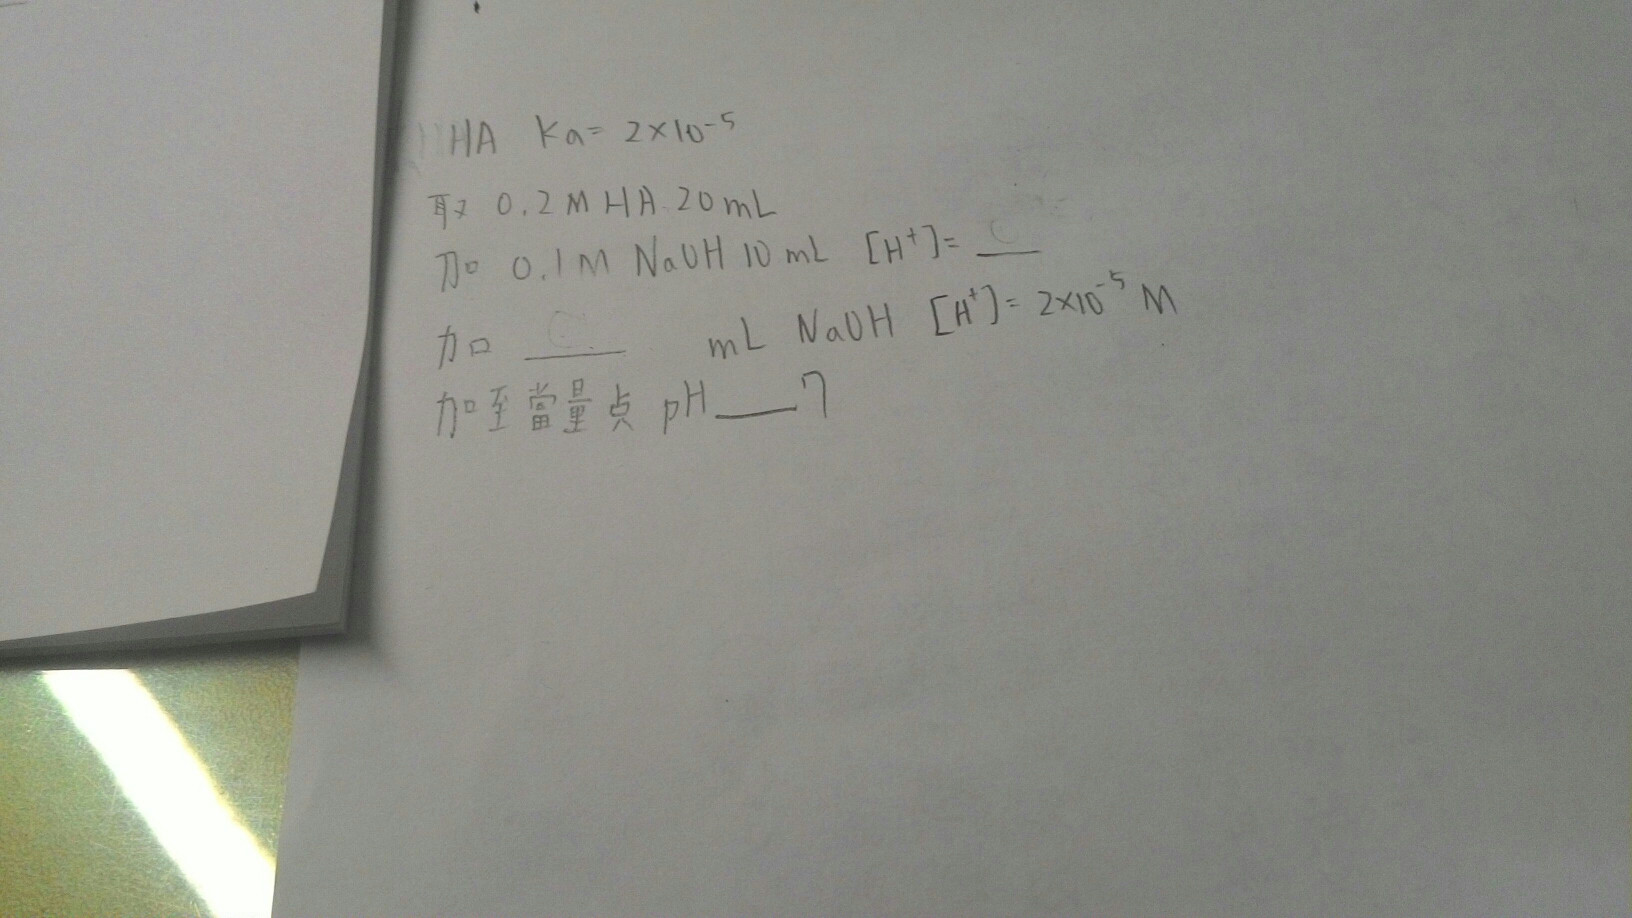 HA Ka= 2×10⁻⁵
取 0.2M HA 20mL
加 0.1M NaOH 10 mL [H⁺]= ___
加 ___ mL NaOH [H⁺]= 2×10⁻⁵ M
加至當量点 pH ___ 7